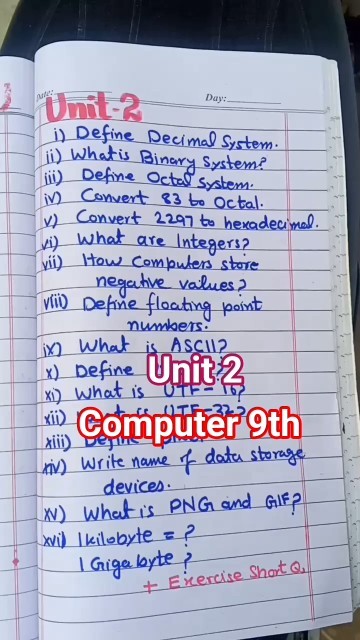 Date:
Day:
Unit-2
i) Define Decimal System.
ii) What is Binary System?
iii) Define Octal System.
iv) Convert 83 to Octal.
v) Convert 2297 to hexadecimal.
vi) What are Integers?
vii) How Computers store
negative values?
viii) Define floating point
numbers.
ix) What is ASCII?
x) Define ?
Unit 2
xi) What is UTF-16?
xii) UTF-32?
Computer 9th
xiii) Define
xiv) Write name of data storage
devices.
xv) What is PNG and GIF?
xvi) 1 kilobyte = ?
1 Gigabyte ?
+ Exercise Short Q.